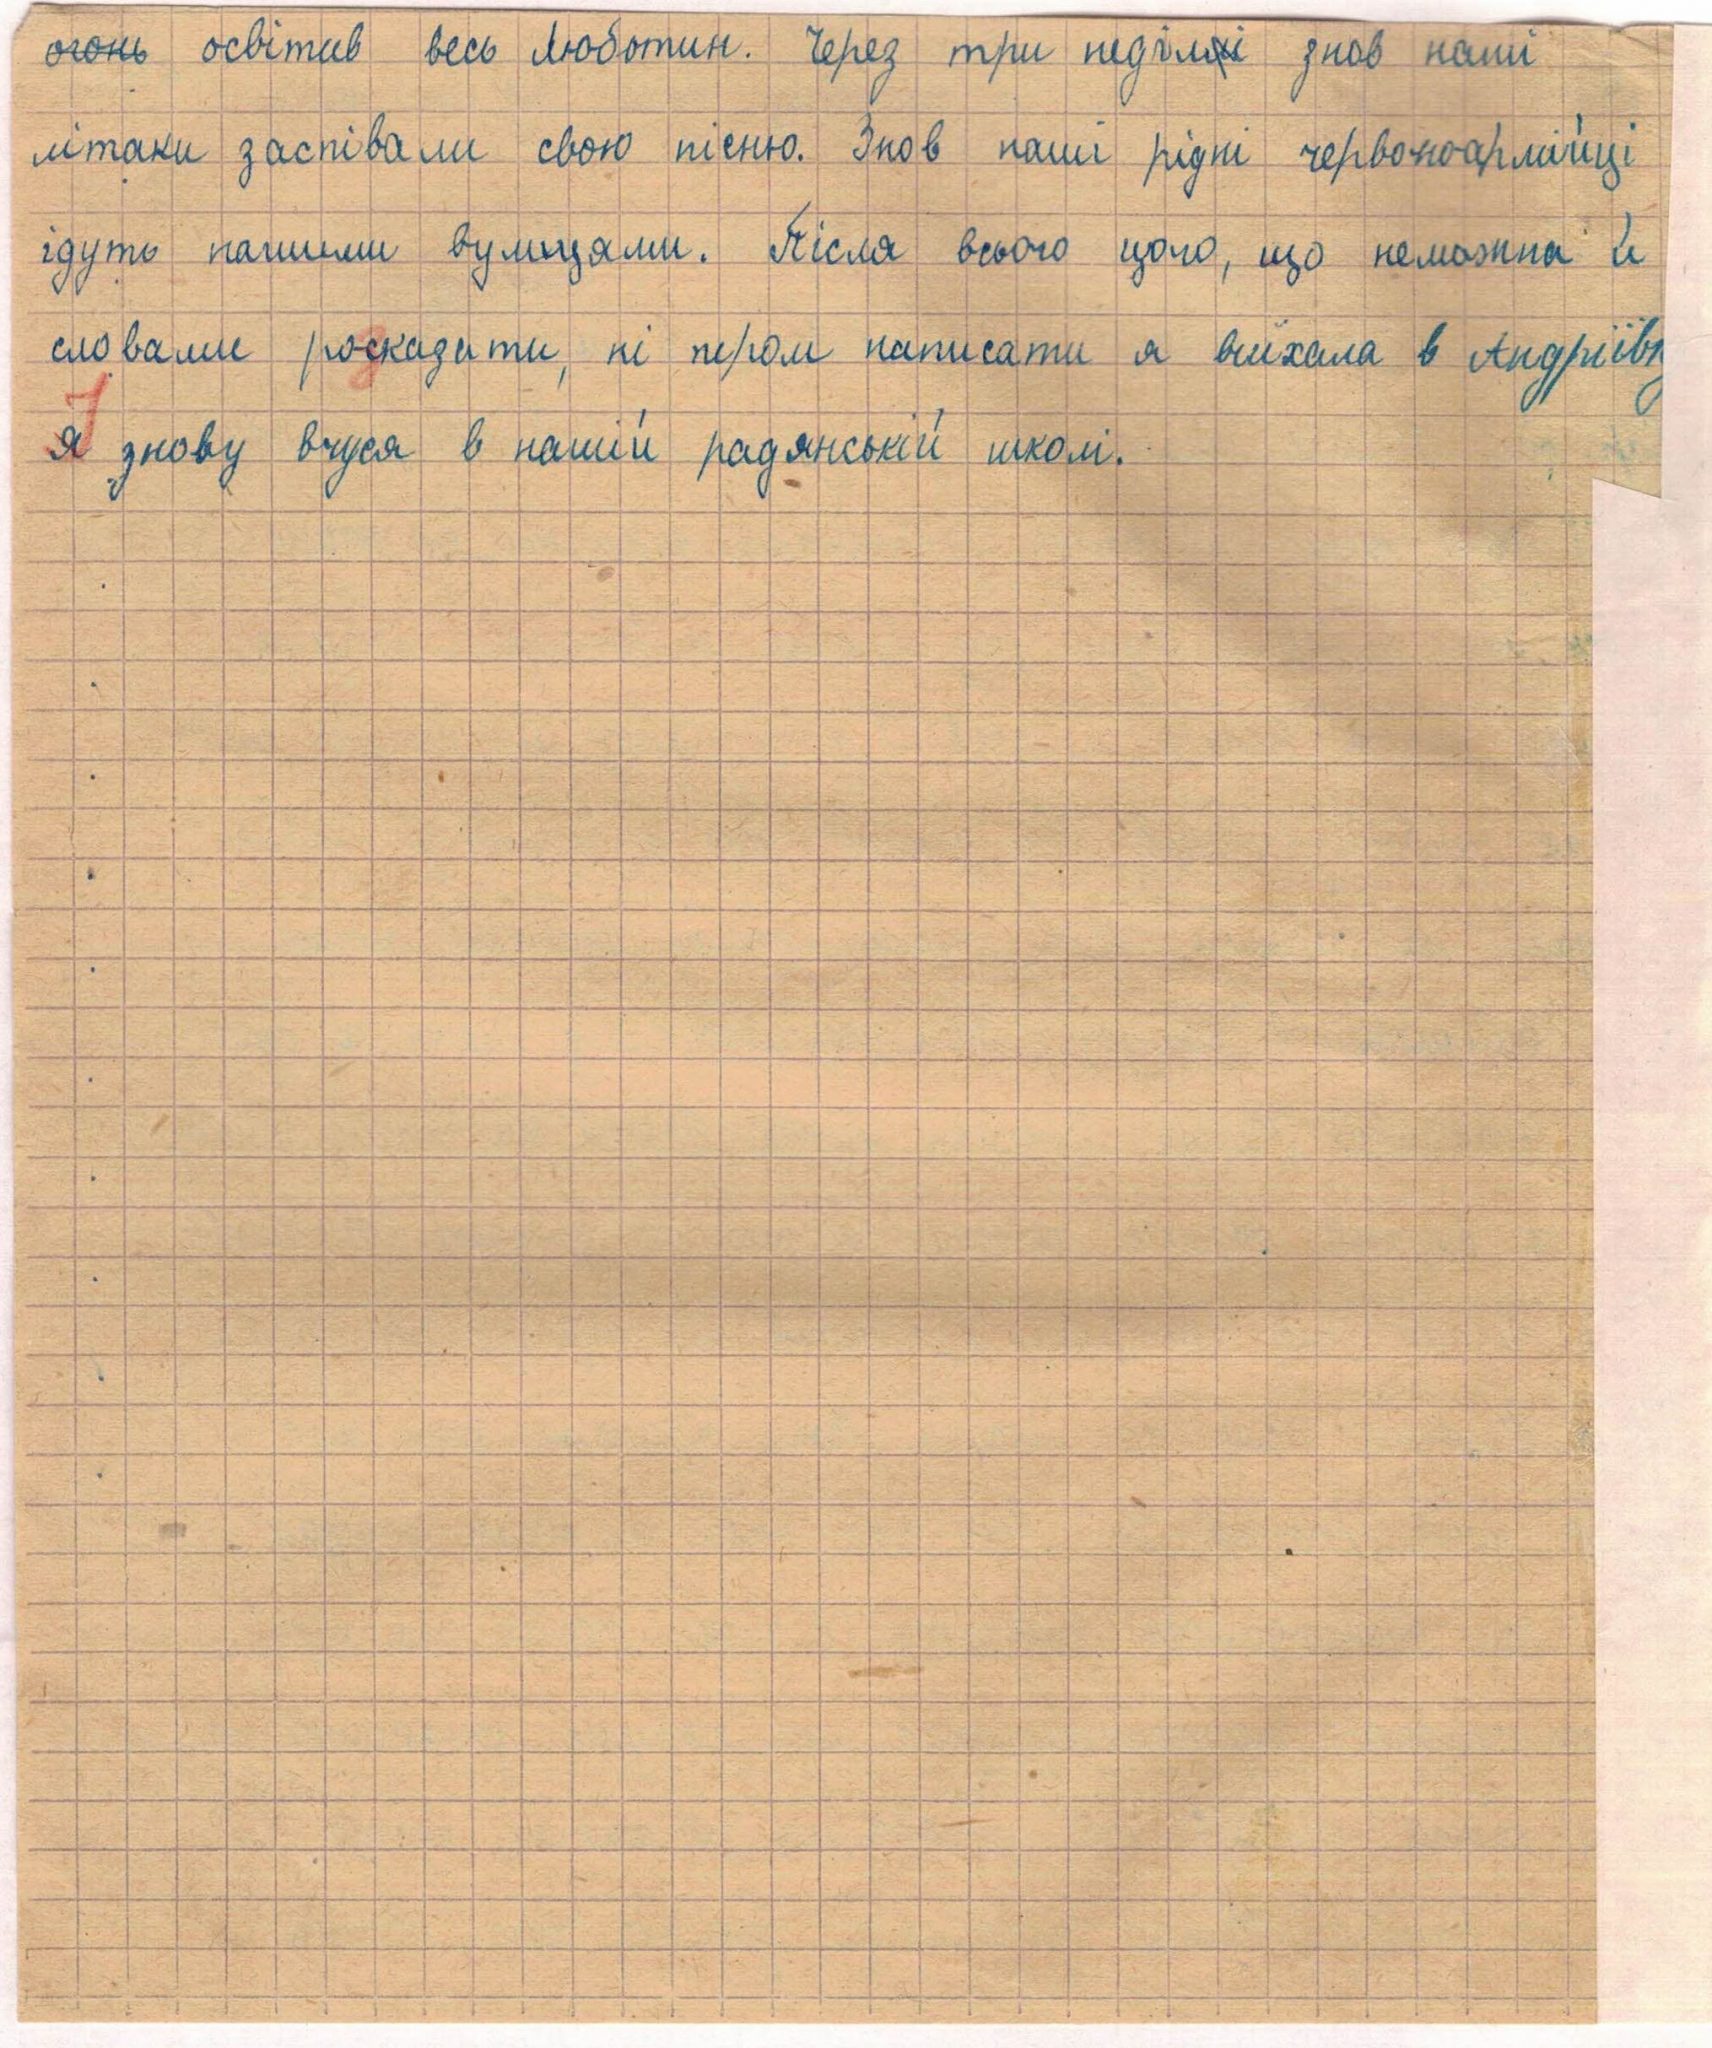 огонь освітив весь Люботин. Через три неділі знов наші
літаки заспівали свою пісню. Знов наші рідні червоноармійці
ідуть нашими вулицями. Після всього цого, що неможна й
словами розказати, ні пером написати я виїхала в Андріївку
Я знову вчуся в нашій радянській школі.